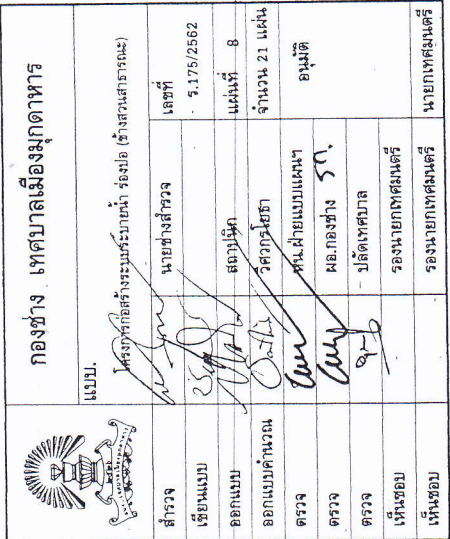 กองช่าง เทศบาลเมืองมุกดาหาร
แบบ.
โครงการก่อสร้างระบบระบายน้ำ ร่องปอ (ข้างสวนสาธารณะ)
สำรวจ นายช่างสำรวจ เลขที่
เขียนแบบ ร.175/2562
ออกแบบ สถาปนิก แผ่นที่ 8
ออกแบบคำนวณ วิศวกรโยธา จำนวน 21 แผ่น
ตรวจ หน.ฝ่ายแบบแผนฯ อนุมัติ
ตรวจ ผอ.กองช่าง
ตรวจ ปลัดเทศบาล
เห็นชอบ รองนายกเทศมนตรี
เห็นชอบ รองนายกเทศมนตรี นายกเทศมนตรี